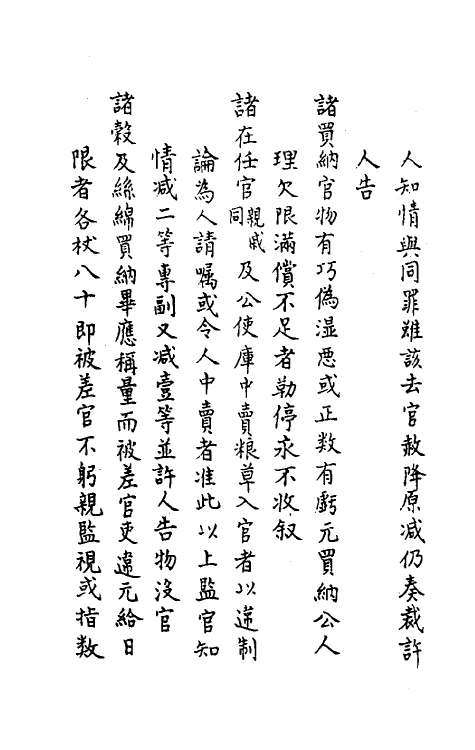 人知情與同罪雖該去官赦降原减仍奏裁許
人告
諸買納官物有巧偽湿悪或正数有虧元買納公人
理欠限滿償不足者勒停永不收叙
諸在任官親戚同及公使庫中賣粮草入官者以違制
論為人請嘱或令人中賣者准此以上監官知
情减二等專副又减壹等並許人告物沒官
諸穀及絲綿買納畢應稱量而被差官吏違元給日
限者各杖八十即被差官不躬親監視或指数